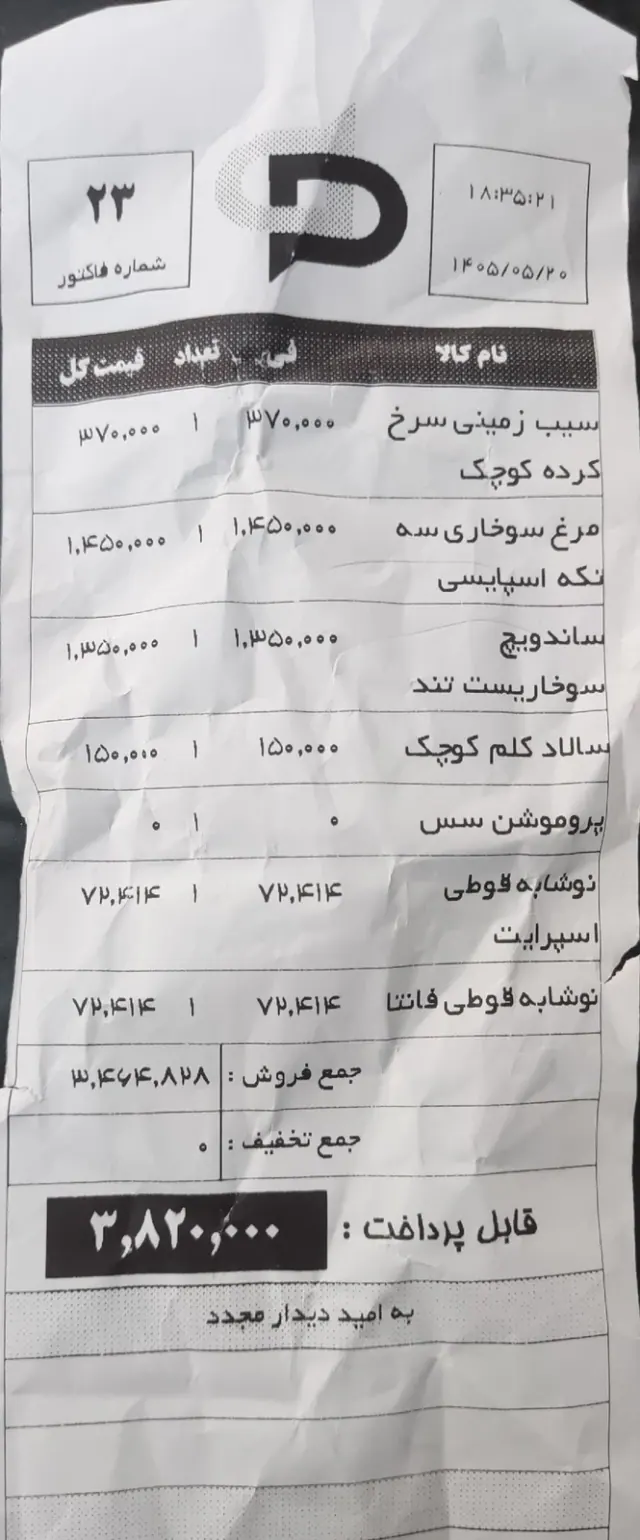 ۱۸:۳۵:۲۱
۱۴۰۵/۰۵/۲۰
۲۳
شماره فاکتور
نام کالا فی تعداد قیمت کل
سیب زمینی سرخ ۳۷۰,۰۰۰ ۱ ۳۷۰,۰۰۰
کرده کوچک
مرغ سوخاری سه ۱,۴۵۰,۰۰۰ ۱ ۱,۴۵۰,۰۰۰
تکه اسپایسی
ساندویچ ۱,۳۵۰,۰۰۰ ۱ ۱,۳۵۰,۰۰۰
سوخاریست تند
سالاد کلم کوچک ۱۵۰,۰۰۰ ۱ ۱۵۰,۰۰۰
پروموشن سس ۰ ۱ ۰
نوشابه قوطی ۷۲,۴۱۴ ۱ ۷۲,۴۱۴
اسپرایت
نوشابه قوطی فانتا ۷۲,۴۱۴ ۱ ۷۲,۴۱۴
جمع فروش : ۳,۴۶۴,۸۲۸
جمع تخفیف : ۰
قابل پرداخت : ۳,۸۲۰,۰۰۰
به امید دیدار مجدد